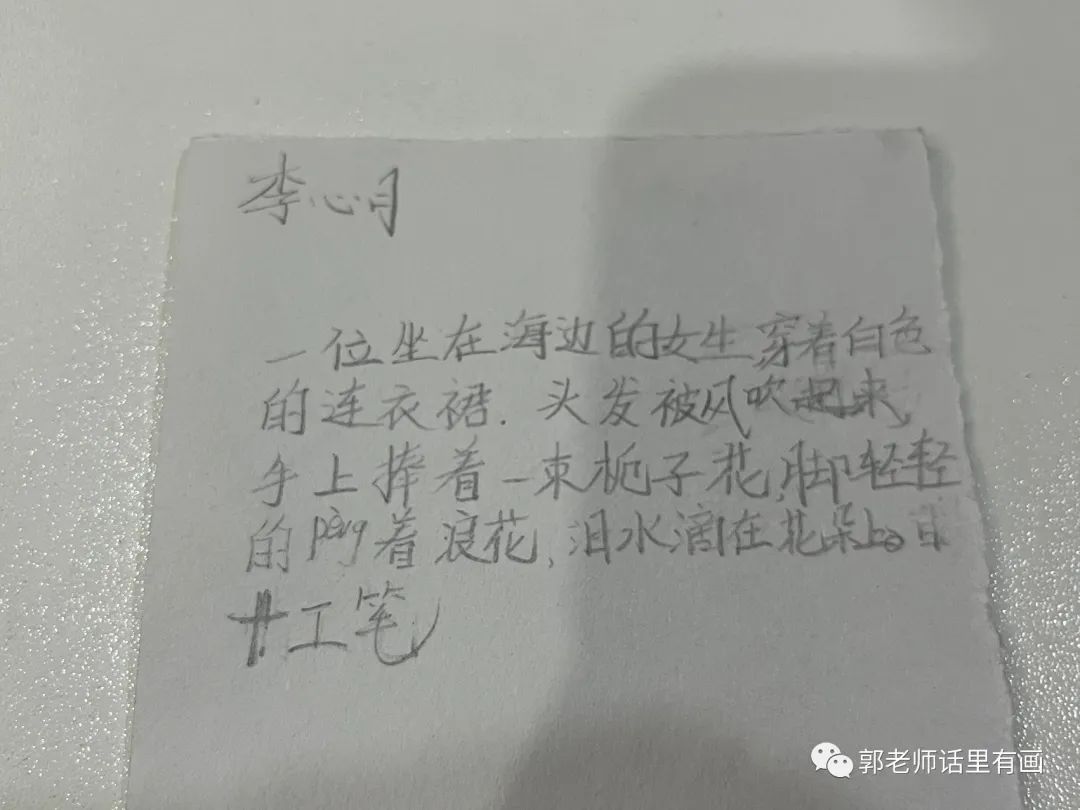 李心月
一位坐在海边的女生穿着白色
的连衣裙.头发被风吹起来,
手上捧着一束栀子花,脚轻轻
的pèng着浪花,泪水滴在花朵上。日
十工笔
郭老师话里有画